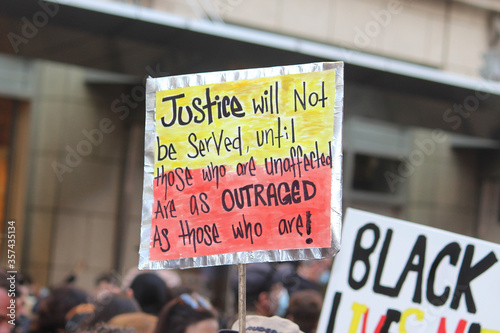 Justice will Not
be Served, until
those who are unaffected
Are as OUTRAGED
As those who are!
BLACK
LIVES
Adobe Stock | #357435134